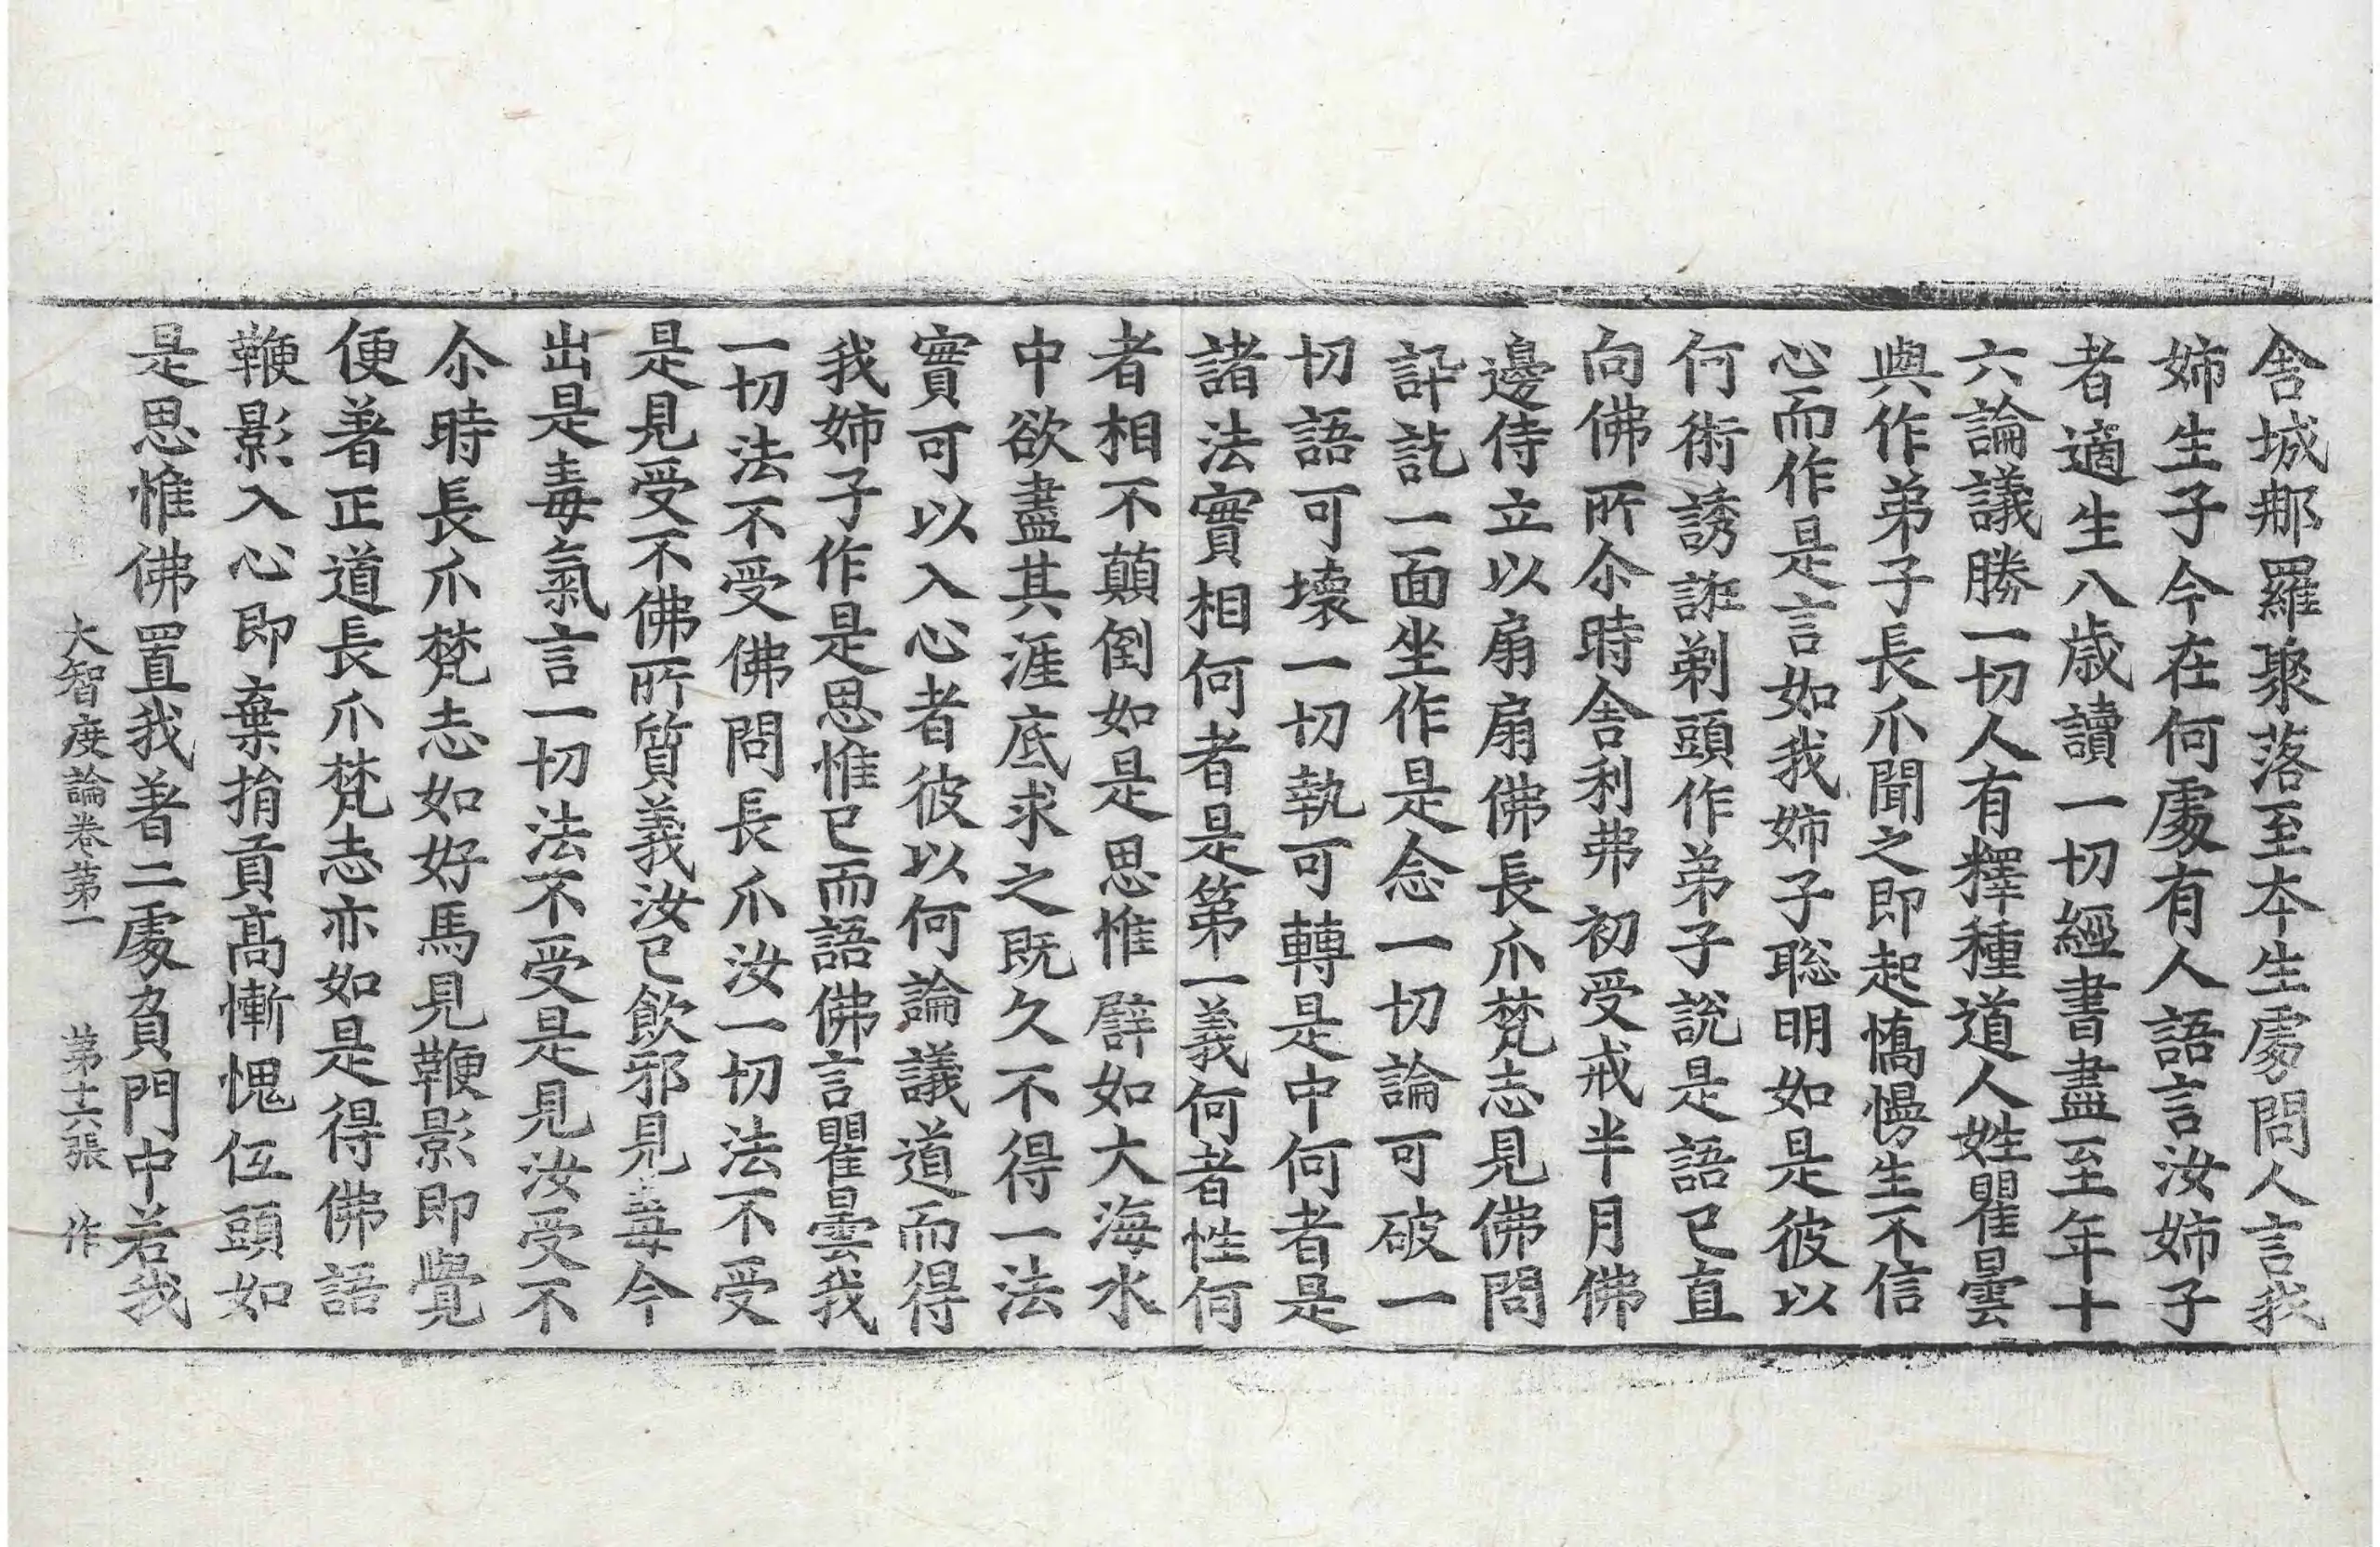 舍城郍羅聚落至本生䖏問人言我
姊生子今在何䖏有人語言汝姊子
者適生八歲讀一切經書盡至年十
六論議勝一切人有釋種道人姓瞿曇
與作弟子長爪聞之即起憍慢生不信
心而作是言如我姊子聡明如是彼以
何術誘誑剃頭作弟子說是語已直
向佛所尒時舍利弗初受戒半月佛
邊侍立以扇扇佛長爪梵志見佛問
訊訖一面坐作是念一切論可破一
切語可壞一切執可轉是中何者是
諸法實相何者是第一義何者性何
者相不顛倒如是思惟譬如大海水
中欲盡其涯底求之既久不得一法
實可以入心者彼以何論議道而得
我姊子作是思惟已而語佛言瞿曇我
一切法不受佛問長爪汝一切法不受
是見受不佛所質義汝已飲邪見毒今
出是毒氣言一切法不受是見汝受不
尒時長爪梵志如好馬見鞭影即覺
便著正道長爪梵志亦如是得佛語
鞭影入心即棄捐貢高慚愧伍頭如
是思惟佛置我著二䖏負門中若我
大智度論卷第一 第十六張 作